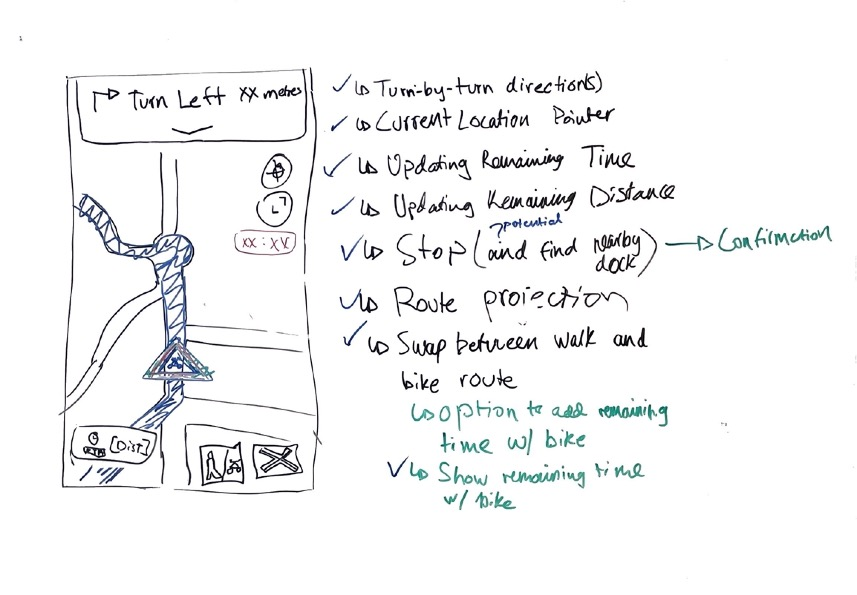 Turn Left XX metres
XX : XX
[Dist]
↳ Turn-by-turn direction(s)
↳ Current Location Pointer
↳ Updating Remaining Time
↳ Updating Remaining Distance
?potential
↳ Stop (and find nearby dock) → Confirmation
↳ Route projection
↳ Swap between walk and
bike route
↳ option to add remaining
time w/ bike
↳ Show remaining time
w/ bike